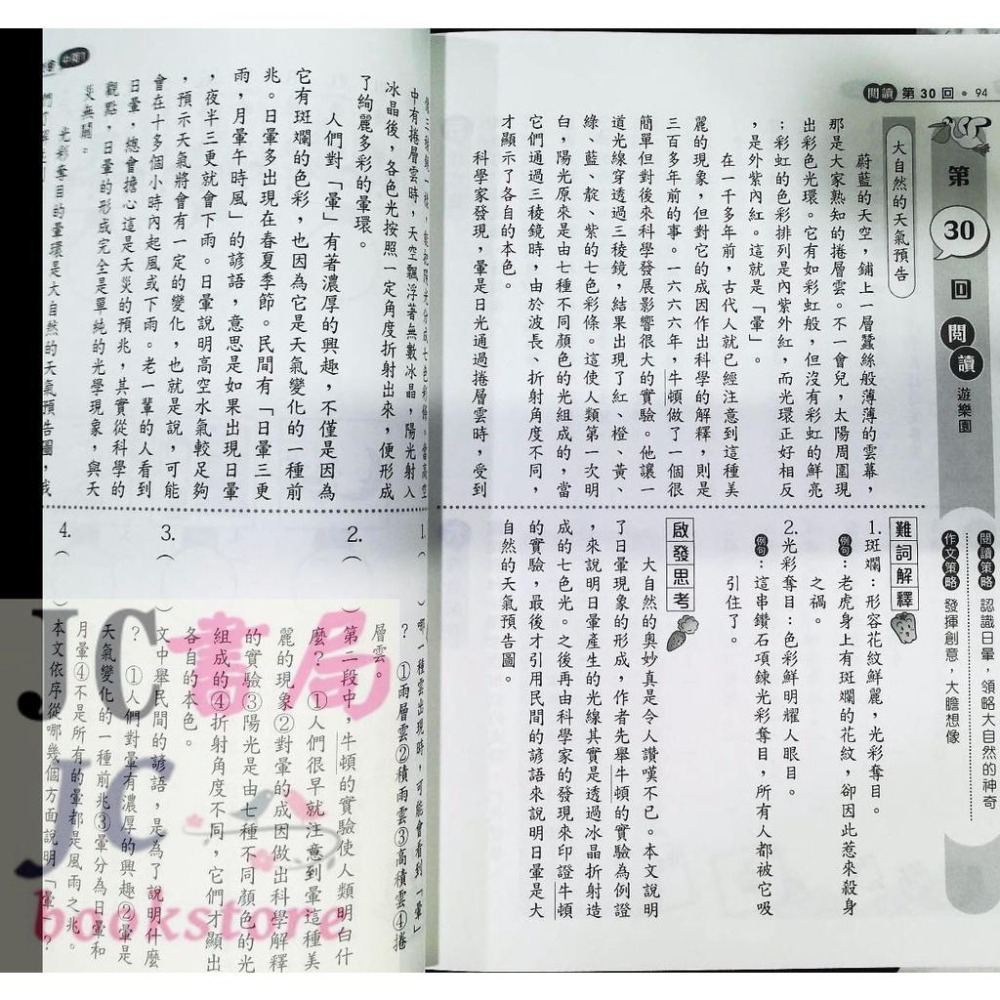 閱讀 第30回・94
第30回 閱讀遊樂園
閱讀策略 認識日暈，領略大自然的神奇
作文策略 發揮創意，大膽想像
大自然的天氣預告
蔚藍的天空，鋪上一層蠶絲般薄薄的雲幕，
那是大家熟知的捲層雲。不一會兒，太陽周圍現
出彩色光環。它有如彩虹般，但沒有彩虹的鮮亮
；彩虹的色彩排列是內紫外紅，而光環正好相反
，是外紫內紅。這就是「暈」。
在一千多年前，古代人就已經注意到這種美
麗的現象，但對它的成因作出科學的解釋，則是
三百多年前的事。一六六六年，牛頓做了一個很
簡單但對後來科學發展影響很大的實驗。他讓一
道光線穿透過三稜鏡，結果出現了紅、橙、黃、
綠、藍、靛、紫的七色彩條。這使人類第一次明
白，陽光原來是由七種不同顏色的光組成的，當
它們通過三稜鏡時，由於波長、折射角度不同，
才顯示了各自的本色。
科學家發現，暈是日光通過捲層雲時，受到
難詞解釋
1.斑斕：形容花紋鮮麗，光彩奪目。
例句：老虎身上有斑斕的花紋，卻因此惹來殺身
之禍。
2.光彩奪目：色彩鮮明耀人眼目。
例句：這串鑽石項鍊光彩奪目，所有人都被它吸
引住了。
啟發思考
大自然的奧妙真是令人讚嘆不已。本文說明
了日暈現象的形成，作者先舉牛頓的實驗為例證
，來說明日暈產生的光線其實是透過冰晶折射造
成的七色光。之後再由科學家的發現來印證牛頓
的實驗，最後才引用民間的諺語來說明日暈是大
自然的天氣預告圖。
中有捲層雲時，天空飄浮著無數冰晶，陽光射入
冰晶後，各色光按照一定角度折射出來，便形成
了絢麗多彩的暈環。
人們對「暈」有著濃厚的興趣，不僅是因為
它有斑斕的色彩，也因為它是天氣變化的一種前
兆。日暈多出現在春夏季節。民間有「日暈三更
雨，月暈午時風」的諺語，意思是如果出現日暈
，夜半三更就會下雨。日暈說明高空水氣較足夠
，預示天氣將會有一定的變化，也就是說，可能
會在十多個小時內起風或下雨。老一輩的人看到
日暈，總會擔心這是天災的預兆，其實從科學的
觀點，日暈的形成完全是單純的光學現象，與天
災無關。
光彩奪目的暈環是大自然的天氣預告圖，我
1.（ ）哪一種雲出現時，可能會看到「暈」
？ ①雨層雲②積雨雲③高積雲④捲
層雲。
2.（ ）第二段中，牛頓的實驗使人類明白什
麼？ ①人們很早就注意到暈這種美
麗的現象②對暈的成因做出科學解釋
的實驗③陽光是由七種不同顏色的光
組成的④折射角度不同，它們才顯出
各自的本色。
3.（ ）文中舉民間的諺語，是為了說明什麼
？ ①人們對暈有濃厚的興趣②暈是
天氣變化的一種前兆③暈分為日暈和
月暈④不是所有的暈都是風雨之兆。
4.（ ）本文依序從哪幾個方面說明「暈」？
JC書局
JC
bookstore